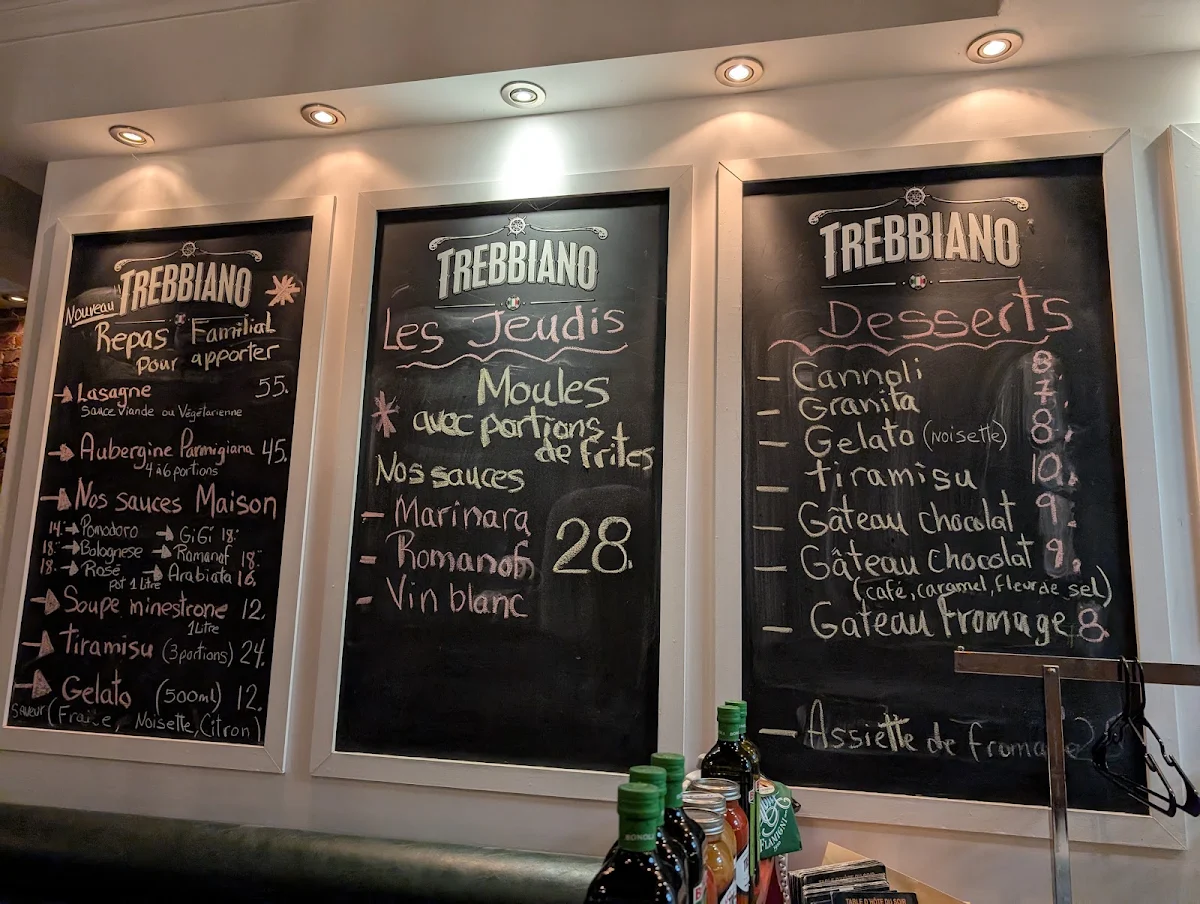 TREBBIANO
Nouveau
Repas Familial
pour apporter
Lasagne 55.
Sauce Viande ou Végétarienne
Aubergine Parmigiana 45.
4 à 6 portions
Nos sauces Maison
14.- Pomodoro GiGi 18.-
18.- Bolognese Romanof 18.-
18.- Rosé Arabiata 16.
Pot 1 Litre
Soupe minestrone 12.
1 Litre
Tiramisu (3 portions) 24.
Gelato (500ml) 12.
Saveur (Fraise, Noisette, Citron)
TREBBIANO
Les Jeudis
Moules
avec portions
de frites
Nos sauces
- Marinara
- Romanof 28.
- Vin blanc
TREBBIANO
Desserts
- Cannoli 8.
- Granita 7.
- Gelato (noisette) 8.
- tiramisu 10.
- Gâteau chocolat 9.
- Gâteau chocolat 9.
(café, caramel, fleur de sel)
- Gateau fromage 8.
- Assiette de fromage
BONOLI
FLAMIGNI
TABLE D'HÔTE DU SOIR